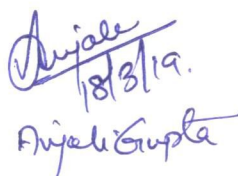 Anjali
18/3/19.
Anjali Gupta